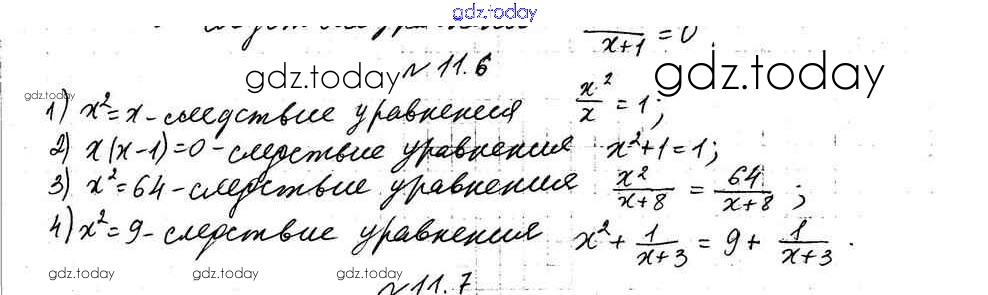 gdz.today
/(x+1) = 0
№ 11.6
gdz.today gdz.today
gdz.today
1) x² = x - следствие уравнения x²/x = 1;
2) x(x-1)=0 - следствие уравнения x²+1=1;
3) x²=64 - следствие уравнения x²/(x+8) = 64/(x+8);
4) x²=9 - следствие уравнения x² + 1/(x+3) = 9 + 1/(x+3).
gdz.today gdz.today gdz.today gdz.today
№ 11.7